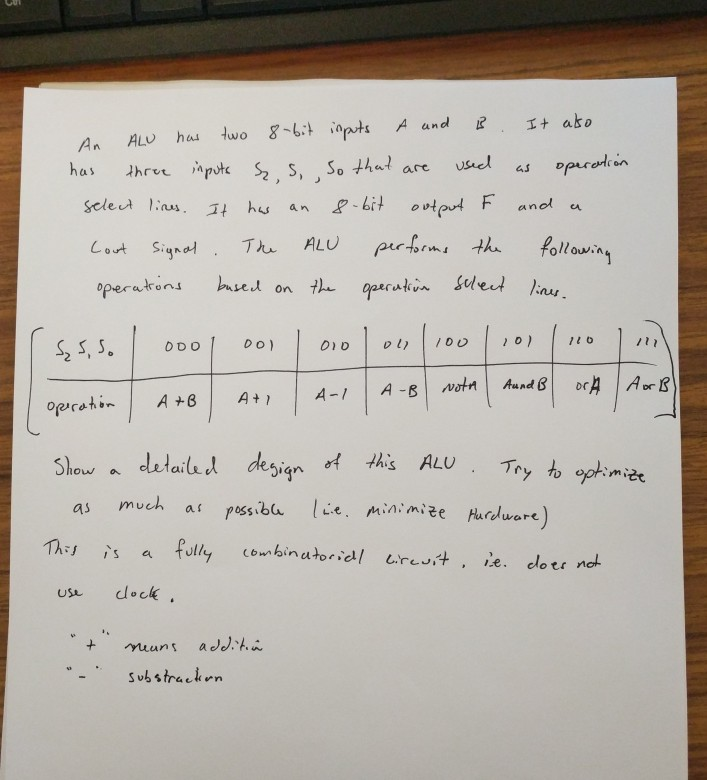 An ALU has two 8-bit inputs A and B. It also
has three inputs S2, S1, S0 that are used as operation
select lines. It has an 8-bit output F and a
Cout signal. The ALU performs the following
operations based on the operation select lines.
S2 S1 S0 | 000 | 001 | 010 | 011 | 100 | 101 | 110 | 111
operation | A+B | A+1 | A-1 | A-B | Not A | A and B | or A | A or B
Show a detailed design of this ALU. Try to optimize
as much as possible (i.e. minimize Hardware)
This is a fully combinatorial circuit, i.e. does not
use clock.
"+" means addition
"-" substraction